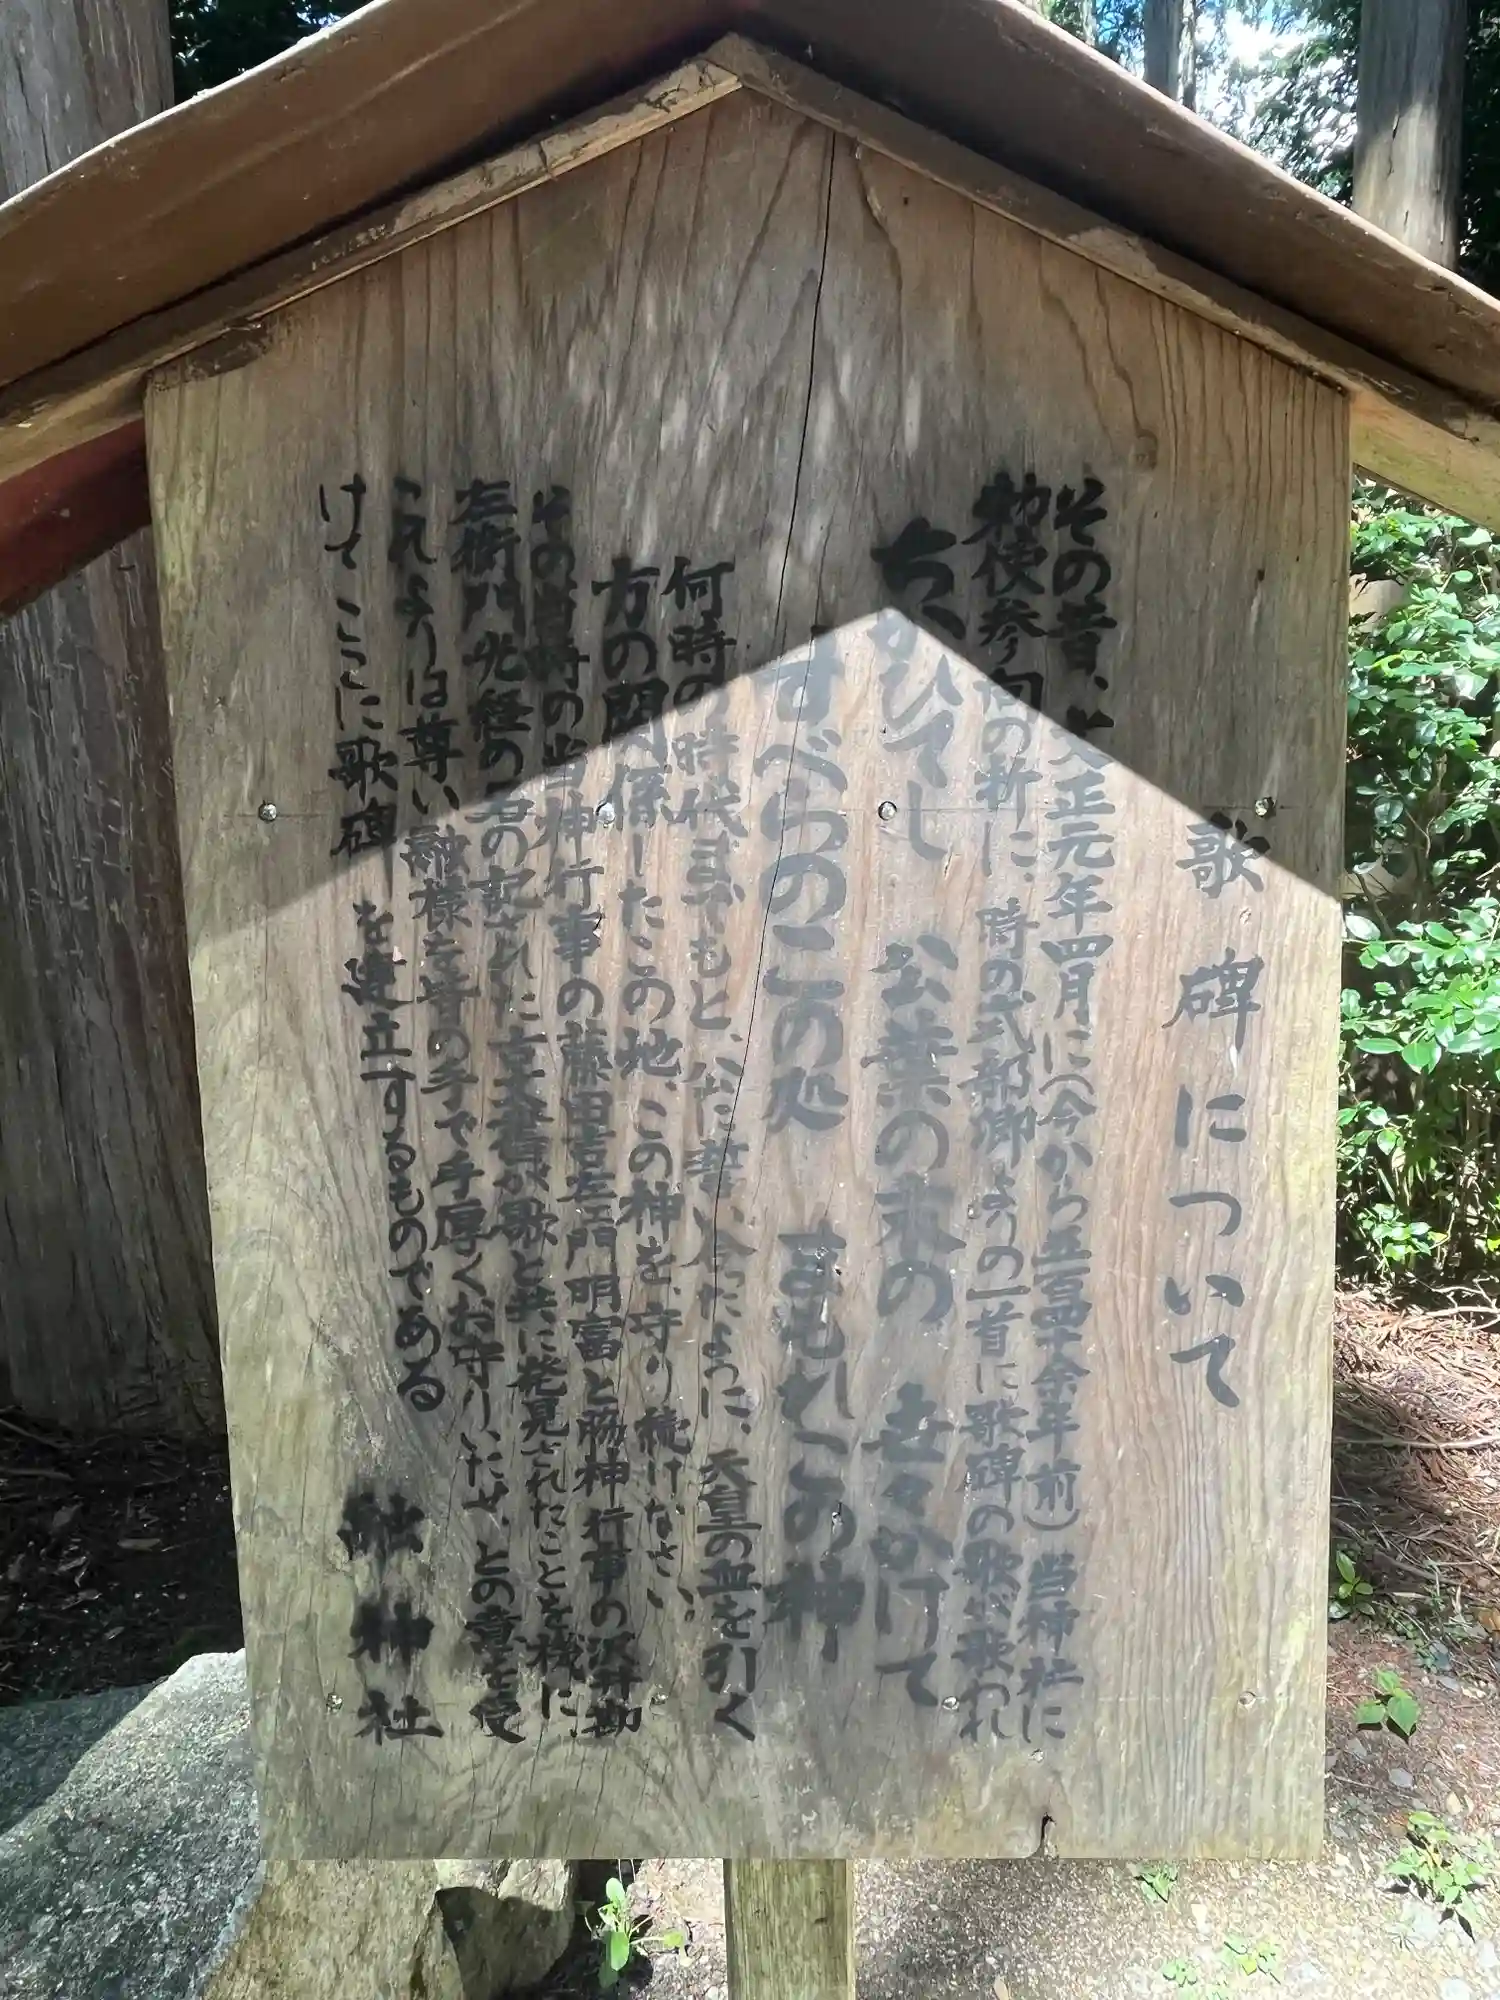 歌碑について
その昔、寛正元年四月に(今から五百四十余年前)当神社に
勅使参向の折に、時の式部卿よりの一首に歌碑の歌が歌われ
ちかひてし 公葉の末の 世々かけて
すべらのこの処 まもれこの神
何時の時代までもと、かた誓い合ったように、天皇の血を引く
方の関係したこの地、この神を、守り続けなさい、
その当時の当神行事の藤田吉左エ門明富と脇神行事の沢井勘
左衛門光経の名の記された古文書が歌と共に発見されたことを機に、
これよりは尊い融様を皆の手で手厚くお守りいたせ、との意を受
けてここに歌碑を建立するものである
融神社